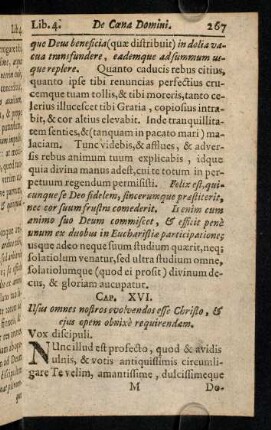 Lib. 4. De Cœna Domini. 267
que Deus beneficia (quæ distribuit) in dolia va
cua transfundere, eademque ad summum us-
que replere. Quanto caducis rebus citius,
quanto ipse tibi renuncias perfectius crucemque
tuam tollis, & tibi moreris, tanto ce-
lerius illucescet tibi Gratia, copiosius intra-
bit, & cor altius elevabit. Inde tranquillita-
tem senties, & (tanquam in pacato mari) ma-
laciam. Tunc videbis, & afflues, & adver-
sis rebus animum tuum explicabis, idque
quia divina manus adest, cui te totum in per-
petuum regendum permisisti. Felix est, qui-
cunque se Deo fidelem, sincerumque præstiterit,
nec cor suum frustra comederit. Is enim cum
animo suo Deum commiscet, & efficit penè
unum ex duobus in Eucharistiæ participatione;
usque adeo neque suum studium quærit, neq;
solatiolum venatur, sed ultra studium omne,
solatiolumque (quod ei prosit) divinum de-
cus, & gloriam aucupatur.
CAP. XVI.
Usus omnes nostros evolvendos esse Christo, &
ejus opem obnixè requirendam.
Vox discipuli.
NUnc illud est profecto, quod & avidis
ulnis, & votis antiquissimis circumli-
gare Te velim, amantissime, dulcissimeque
M Do-